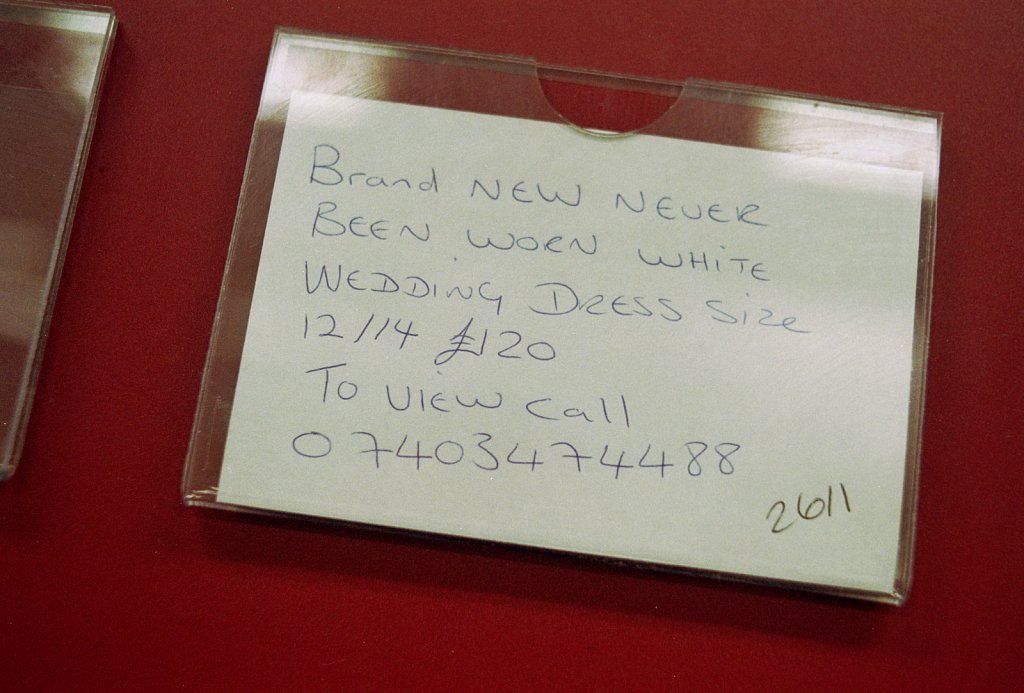 Brand NEW NEVER
BEEN WORN WHITE
WEDDING DRESS Size
12/14 £120
To VIEW Call
07403474488
2611